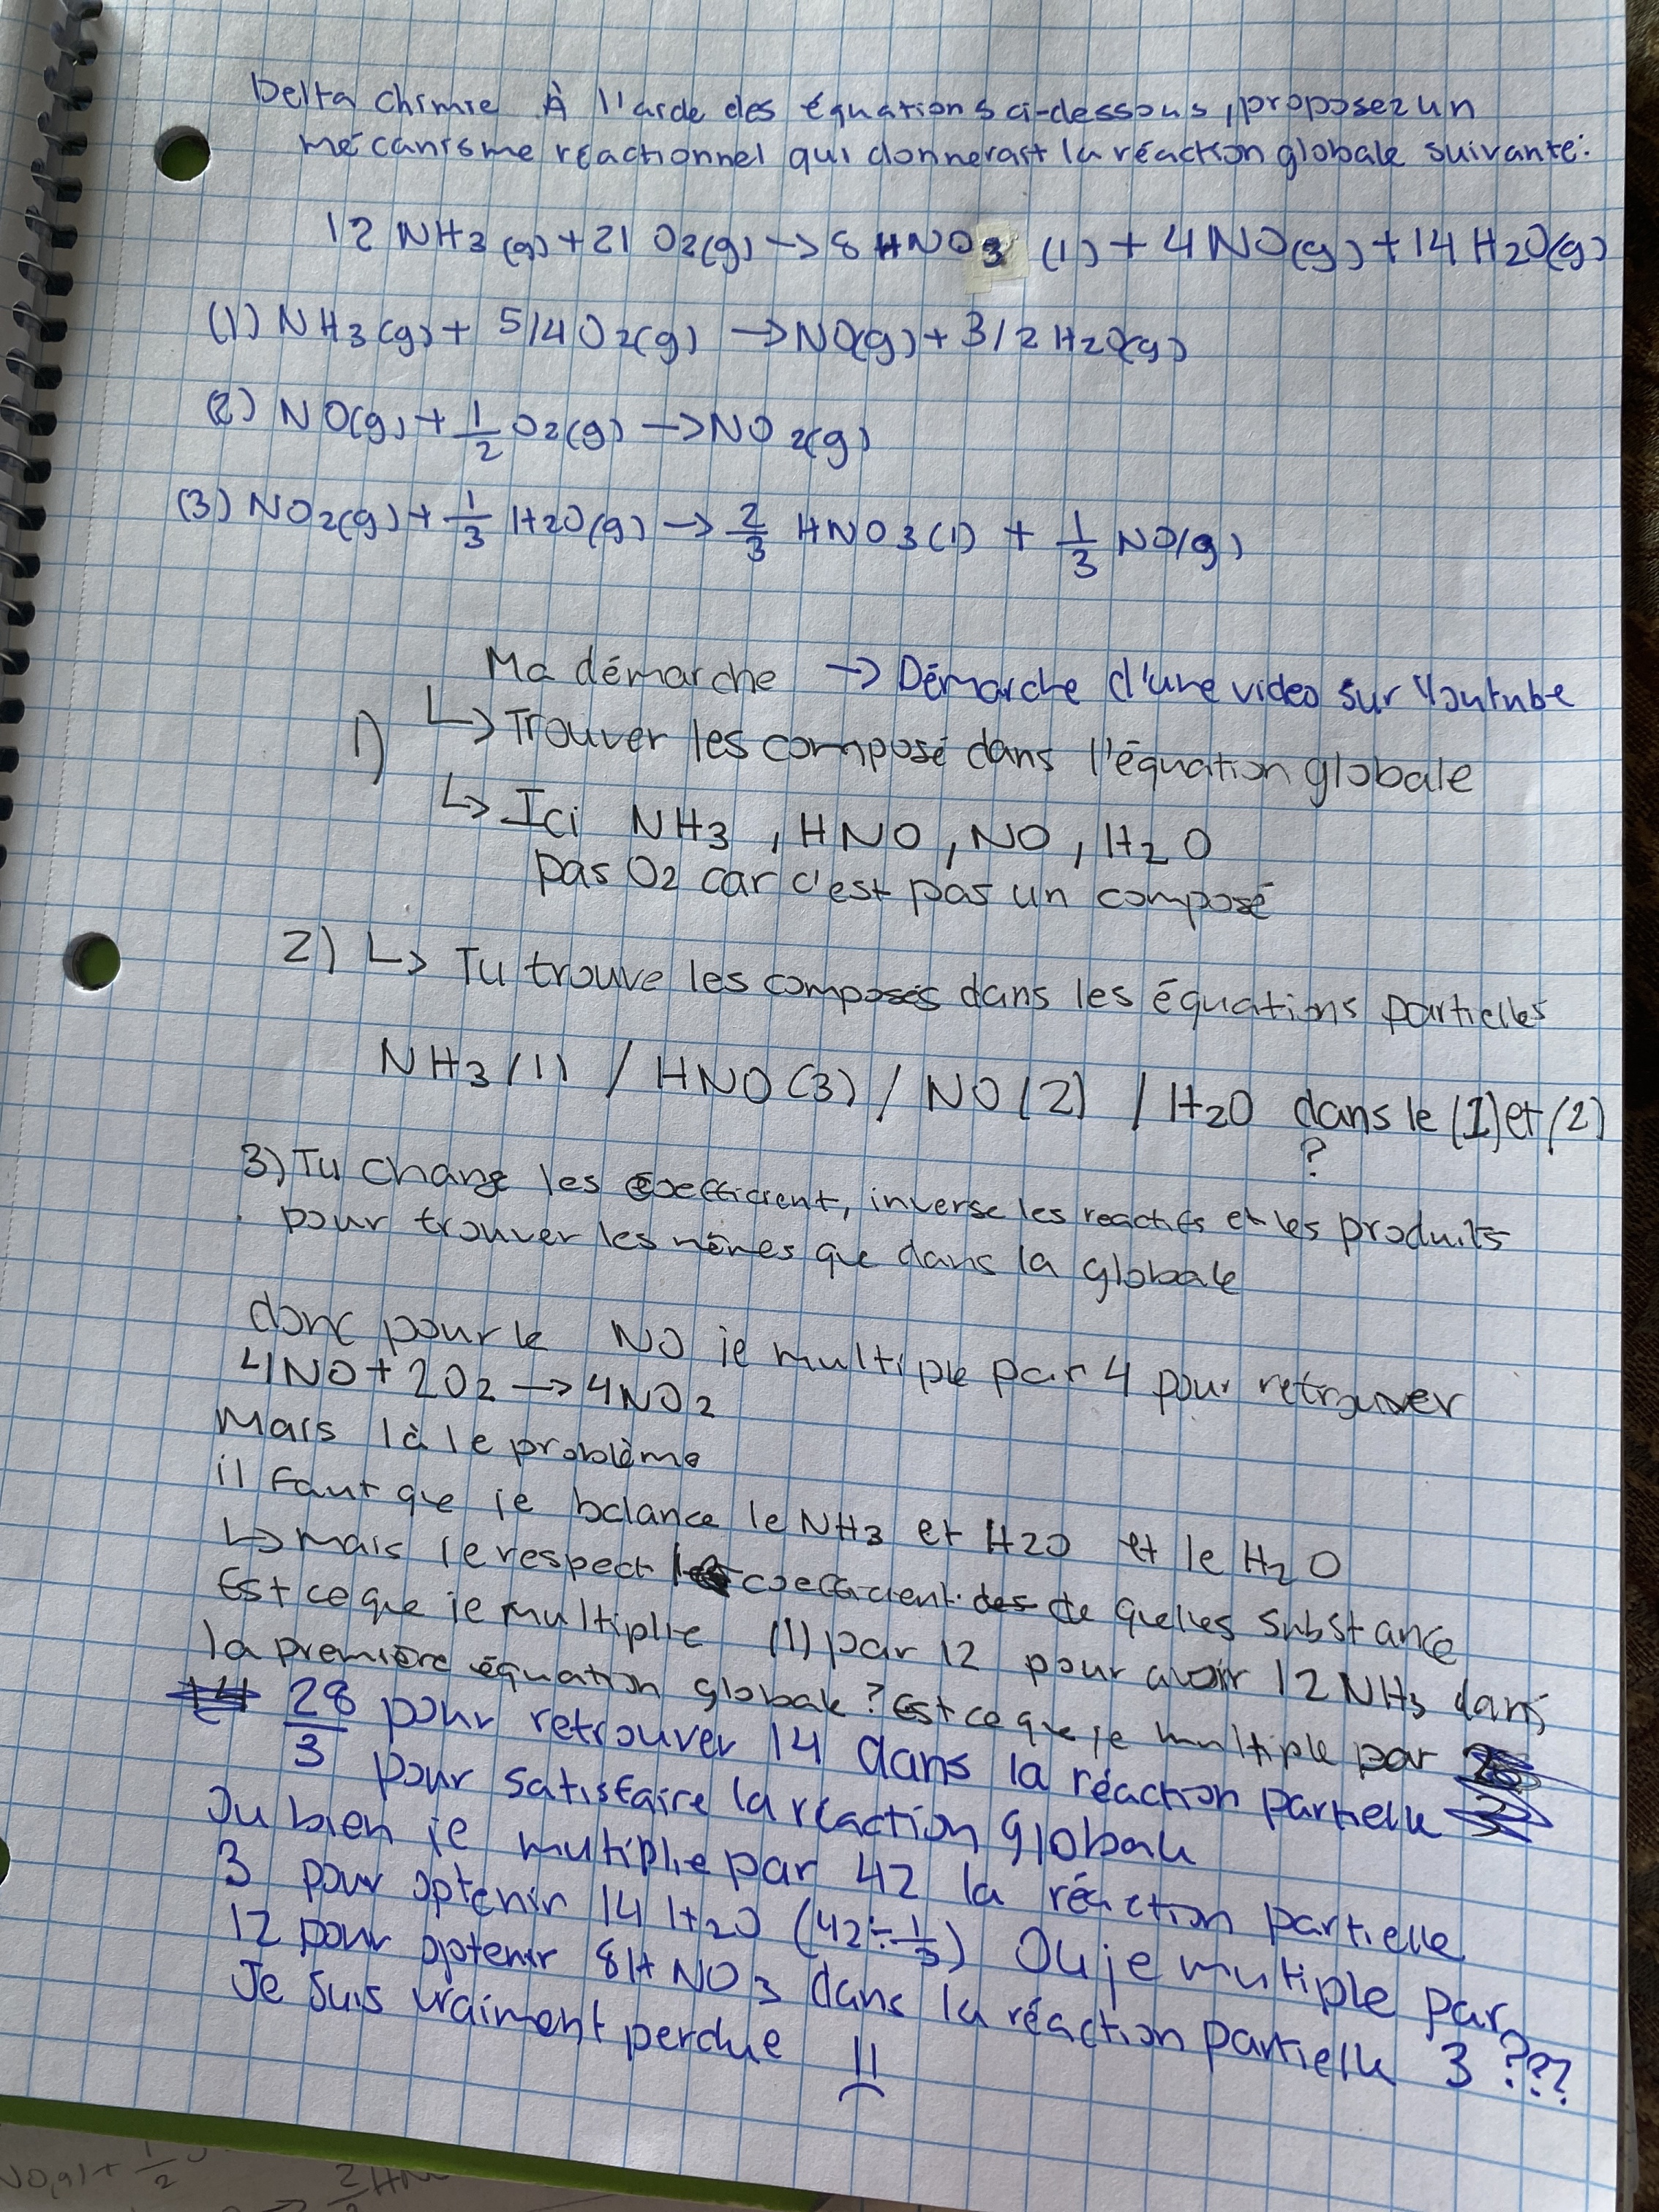 Delta Chimie À l'aide des équations ci-dessous, proposez un
mécanisme réactionnel qui donnerait la réaction globale suivante:
12 NH3 (g) + 21 O2(g) -> 8 HNO3 (l) + 4 NO(g) + 14 H2O(g)
(1) NH3(g) + 5/4 O2(g) -> NO(g) + 3/2 H2O(g)
(2) NO(g) + 1/2 O2(g) -> NO2(g)
(3) NO2(g) + 1/3 H2O(g) -> 2/3 HNO3(l) + 1/3 NO(g)
Ma démarche -> Démarche d'une video sur Youtube
1) ↳ Trouver les composé dans l'équation globale
↳ Ici NH3, HNO, NO, H2O
pas O2 car c'est pas un composé
2) ↳ Tu trouve les composés dans les équations partielles
NH3 (1) / HNO (3) / NO (2) / H2O dans le (1) et (2)
?
3) Tu change les coefficient, inverse les reactifs et les produits
pour trouver les mêmes que dans la globale
donc pour le NO je multiple par 4 pour retrouver
4NO + 2O2 -> 4NO2
Mais là le problème
il faut que je balance le NH3 et H2O et le H2O
↳ mais je respect coefficient de quelles substance
Est ce que je multiplie (1) par 12 pour avoir 12 NH3 dans
la première équation globale? Est ce que je multiple par
28/3 pour retrouver 14 dans la réaction partielle
pour satisfaire la réaction globale
Ou bien je multiplie par 42 la réaction partielle
3 pour optenir 14 H2O (42÷1/3) Ou je multiple par
12 pour optenir 8HNO3 dans la réaction partielle 3???
Je suis vraiment perdue